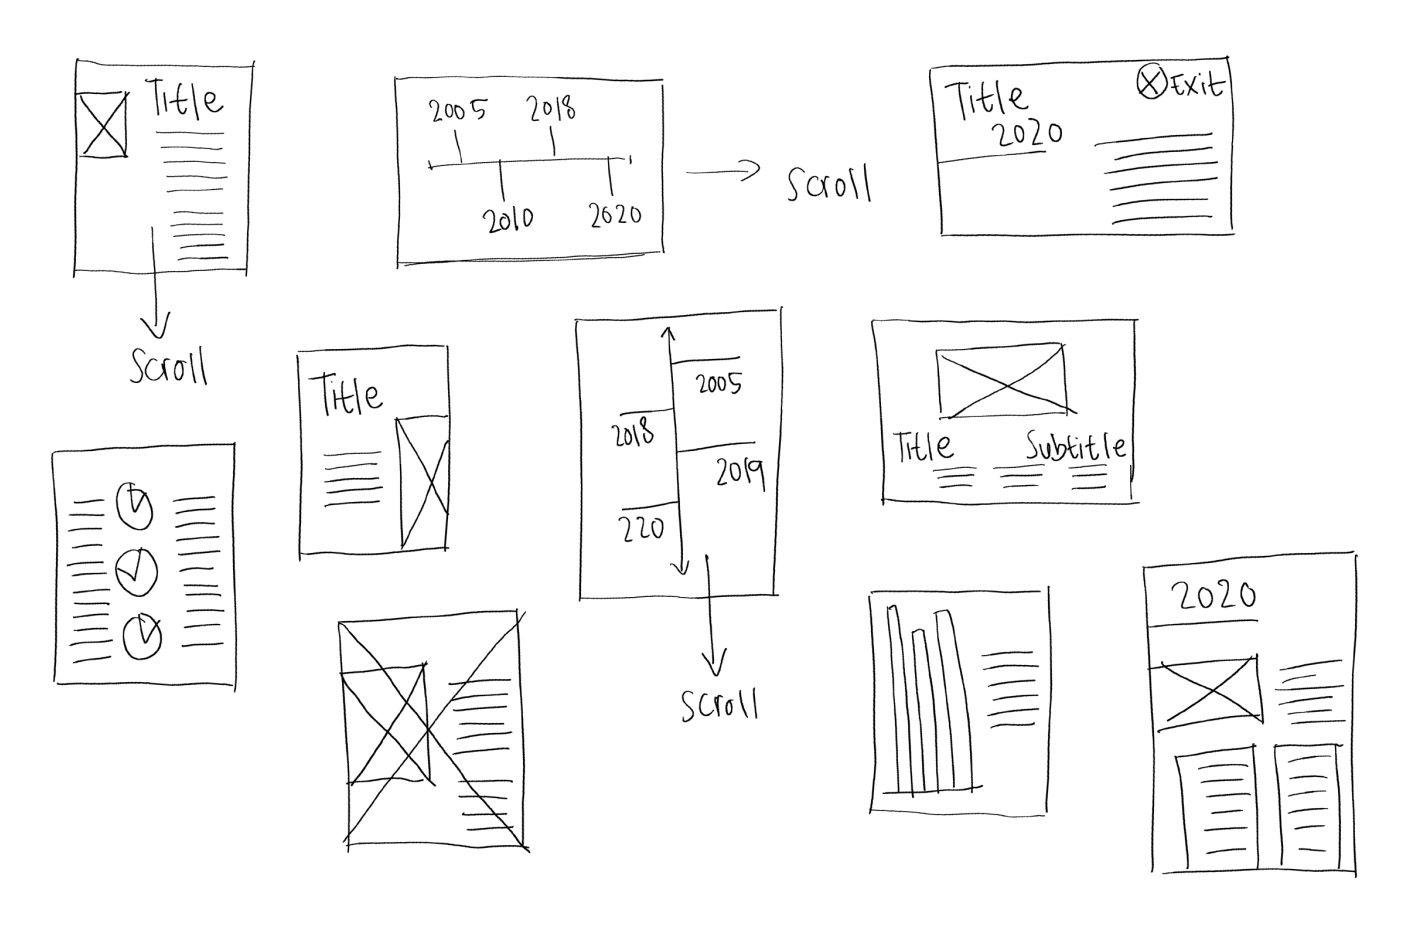 Title
Scroll
2005
2018
2010
2020
Scroll
Title
2020
Exit
Title
2005
2018
2019
220
Scroll
Title
Subtitle
2020